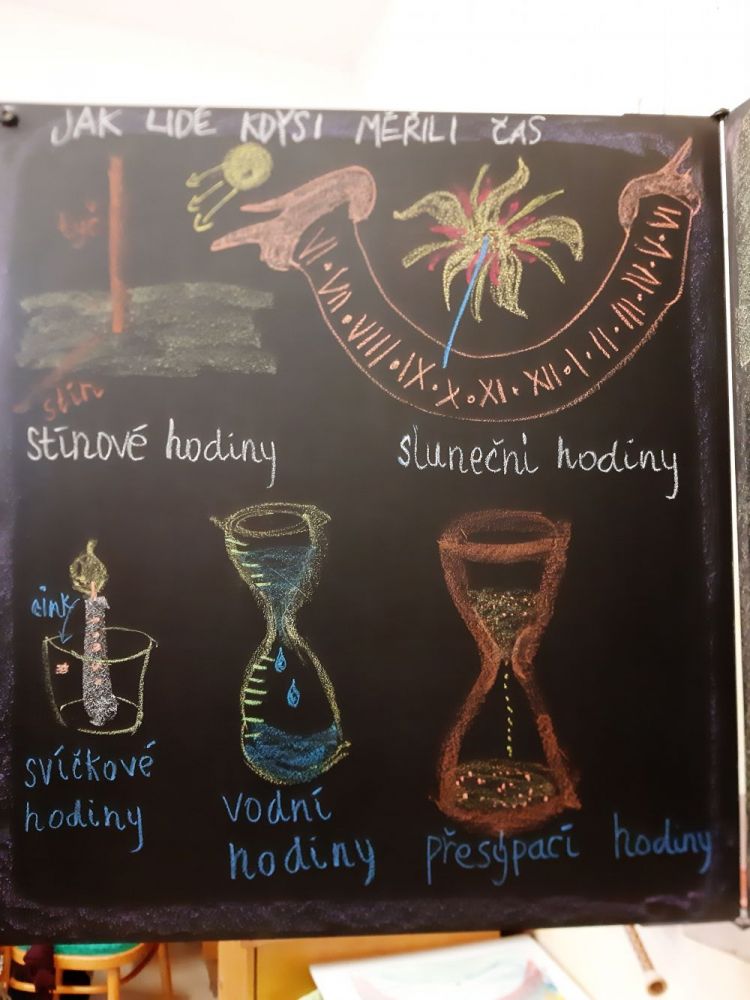 JAK LIDÉ KDYSI MĚŘILI ČAS
tyč
stín
VI • VII • VIII • IX • X • XI • XII • I • II • III • IV • V • VI
stínové hodiny
sluneční hodiny
cink
svíčkové
hodiny
vodní
hodiny
přesýpací hodiny